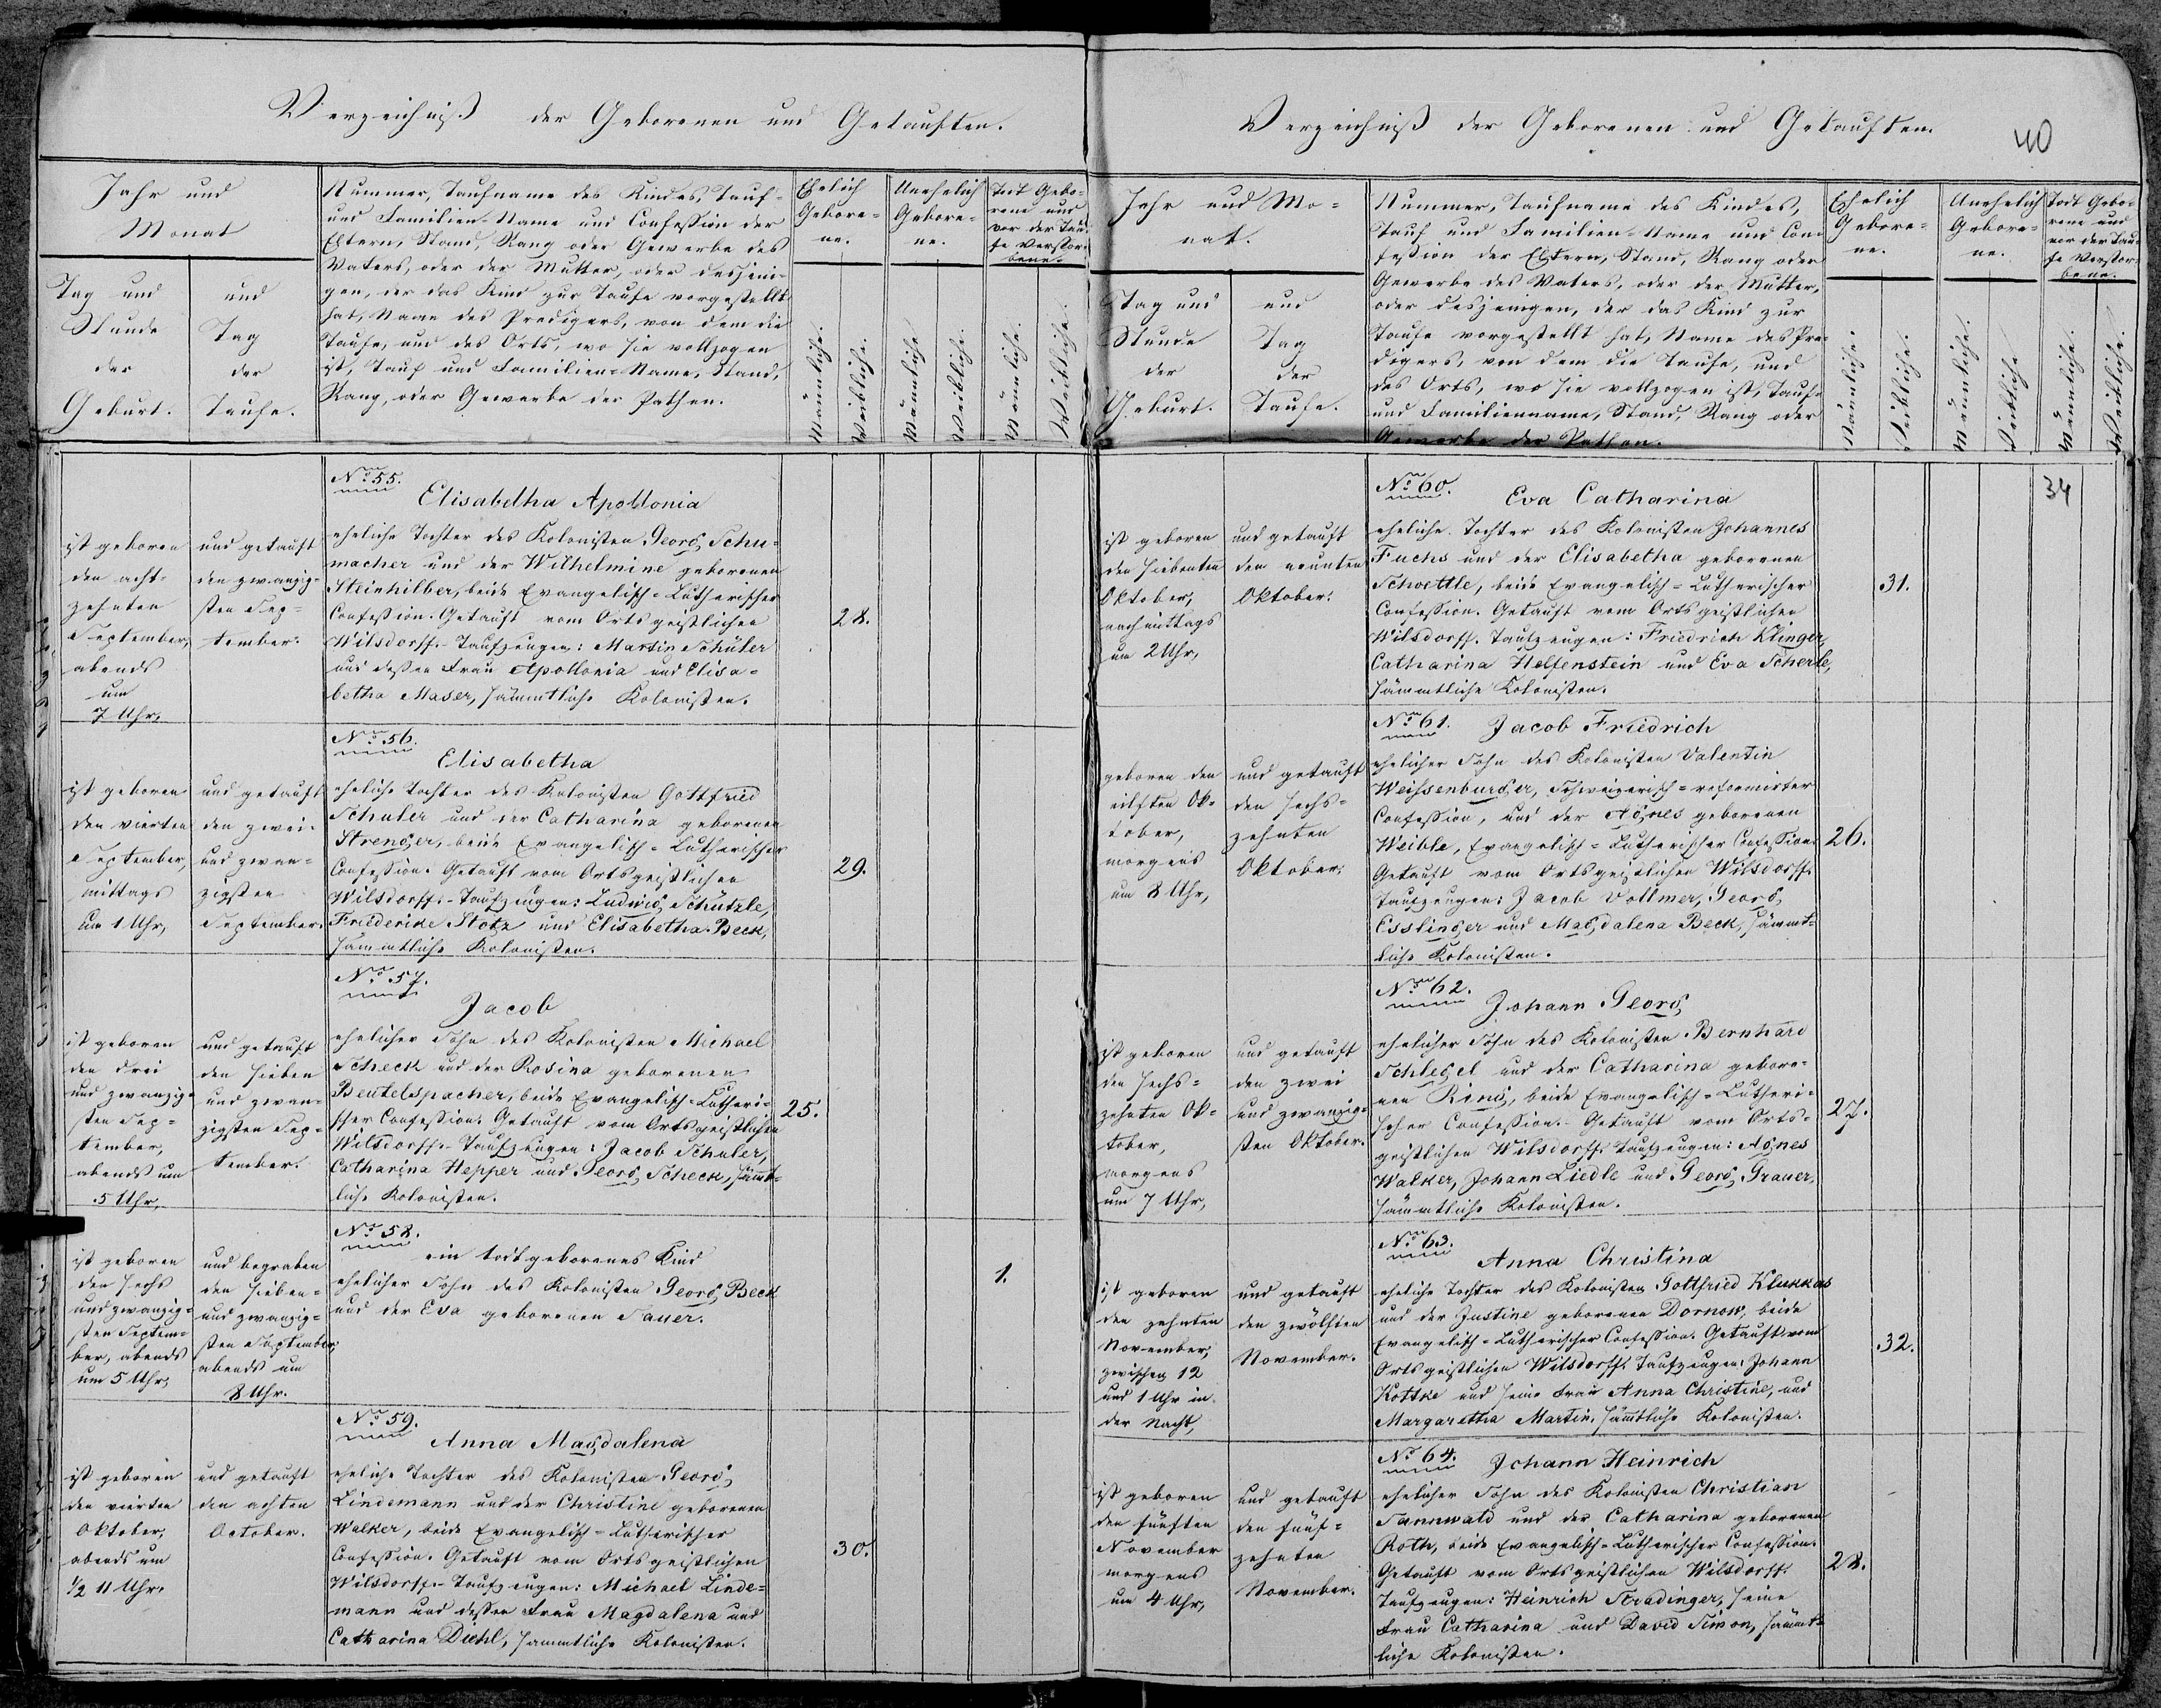 Verzeichniß der Geborenen und Getauften.
Jahr und
Monat
Tag und
Stunde
der
Geburt.
und
Tag
der
Taufe.
Nummer, Taufname des Kindes, Tauf-
und Familien-Name und Confession der
Eltern, Stand, Rang oder Gewerbe des
Vaters, oder der Mutter, oder desjeni-
gen, der das Kind zur Taufe vorgestellt
hat, Name des Predigers, von dem die
Taufe, und des Orts, wo sie vollzogen
ist, Tauf und Familien-Name, Stand,
Rang, oder Gewerbe der Pathen.
Ehelich
Gebore-
ne.
Unehelich
Gebore-
ne.
Todt Gebo-
rene und
vor der Tau-
fe Verstor-
bene.
Männliche.
Weibliche.
Männliche.
Weibliche.
Männliche.
Weibliche.
ist geboren
den acht-
zehnten
September,
abends
um
7 Uhr,
und getauft
den zwanzig-
sten Sep-
tember.
No. 55.
Elisabetha Apollonia
eheliche Tochter des Kolonisten Georg Schu-
macher und der Wilhelmine geborenen
Steinhilber, beide Evangelisch-Lutherischer
Confession. Getauft vom Ortsgeistlichen
Wilsdorff. Taufzeugen: Martin Schüler
und dessen Frau Apollonia und Elisa-
betha Maser, sämmtliche Kolonisten.
28.
ist geboren
den vierten
September,
mittags
um 1 Uhr,
und getauft
den zwei-
und zwan-
zigsten
September.
No. 56.
Elisabetha
eheliche Tochter des Kolonisten Gottfried
Schuler und der Catharina geborenen
Strenger, beide Evangelisch-Lutherischer
Confession. Getauft vom Ortsgeistlichen
Wilsdorff. Taufzeugen: Ludwig Schützle,
Friederike Stotz und Elisabetha Beck,
sämmtliche Kolonisten.
29.
ist geboren
den drei
und zwanzig-
sten Sep-
tember,
abends um
5 Uhr,
und getauft
den sieben
und zwan-
zigsten Sep-
tember.
No. 57.
Jacob
ehelicher Sohn des Kolonisten Michael
Scheck und der Rosina geborenen
Beutelspacher, beide Evangelisch-Lutheri-
scher Confession. Getauft vom Ortsgeistlichen
Wilsdorff. Taufzeugen: Jacob Schuler,
Catharina Hepper und Georg Scheck, sämt-
liche Kolonisten.
25.
ist geboren
den sechs
und zwanzig-
sten Septem-
ber, abends
um 5 Uhr,
und begraben
den sieben-
und zwanzig-
sten September,
abends um
8 Uhr.
No. 58.
ein todtgeborenes Kind
ehelicher Sohn des Kolonisten Georg Beck
und der Eva geborenen Sauer.
1.
ist geboren
den vierten
Oktober,
abends um
1/2 11 Uhr,
und getauft
den achten
October.
No. 59.
Anna Magdalena
eheliche Tochter des Kolonisten Georg
Lindemann und der Christine geborenen
Walker, beide Evangelisch-Lutherischer
Confession. Getauft vom Ortsgeistlichen
Wilsdorff. Taufzeugen: Michael Linde-
mann und dessen Frau Magdalena und
Catharina Diehl, sammtliche Kolonisten.
30.
Verzeichniß der Geborenen und Getauften.
40
Jahr und Mo-
nat.
Tag und
Stunde
der
Geburt.
und
Tag
der
Taufe.
Nummer, Taufname des Kindes,
Tauf und Familien-Name und Con-
fession der Eltern, Stand, Rang oder
Gewerbe des Vaters, oder der Mutter,
oder desjenigen, der das Kind zur
Taufe vorgestellt hat, Name des Pre-
digers, von dem die Taufe, und
des Orts, wo sie vollzogen ist, Tauf-
und Familienname, Stand, Rang oder
Gewerbe der Pathen.
Ehelich
Gebore-
ne.
Unehelich
Gebore-
ne.
Todt Gebo-
rene und
vor der Tau-
fe Verstor-
bene.
Männliche.
Weibliche.
Männliche.
Weibliche
Männliche.
Weibliche.
34
ist geboren
den siebenten
Oktober,
nachmittags
um 2 Uhr,
und getauft
den neunten
Oktober.
No. 60.
Eva Catharina
eheliche Tochter des Kolonisten Johannes
Fuchs und der Elisabetha geborenen
Schoettle, beide Evangelisch-Lutherischer
Confession. Getauft vom Ortsgeistlichen
Wilsdorff. Taufzeugen: Friedrich Klinger,
Catharina Helfenstein und Eva Scherle,
sämmtliche Kolonisten.
31.
geboren den
eilften Ok-
tober,
morgens
um 8 Uhr,
und getauft
den sechs-
zehnten
Oktober.
No. 61.
Jacob Friedrich
ehelicher Sohn des Kolonisten Valentin
Weissenburger, Schweizerisch-reformirter
Confession, und der Agnes geborenen
Weible, Evangelisch-Lutherischer Confession.
Getauft vom Ortsgeistlichen Wilsdorff.
Taufzeugen: Jacob Vollmer, Georg
Esslinger und Magdalena Beck, sämmt-
liche Kolonisten.
26.
ist geboren
den sechs-
zehnten Ok-
tober,
morgens
um 7 Uhr,
und getauft
den zwei
und zwanzig-
sten Oktober.
No. 62.
Johann Georg
ehelicher Sohn des Kolonisten Bernhard
Schlegel und der Catharina gebore-
nen Ring, beide Evangelisch-Lutheri-
scher Confession. Getauft vom Orts-
geistlichen Wilsdorff. Taufzeugen: Agnes
Walker, Johann Liedle und Georg Grauer,
sämmtliche Kolonisten.
27.
ist geboren
den zehnten
November,
zwischen 12
und 1 Uhr in
der Nacht,
und getauft
den zwölften
November.
No. 63.
Anna Christina
eheliche Tochter des Kolonisten Gottfried Klukkas
und der Justine geborenen Dornow, beide
Evangelisch-Lutherischer Confession. Getauft vom
Ortsgeistlichen Wilsdorff. Taufzeugen: Johann
Kottke und seine Frau Anna Christine, und
Margaretha Martin, sämtliche Kolonisten.
32.
ist geboren
den fünften
November
morgens
um 4 Uhr,
und getauft
den fünf-
zehnten
November.
No. 64.
Johann Heinrich
ehelicher Sohn des Kolonisten Christian
Tannwald und der Catharina geborenen
Roth, beide Evangelisch-Lutherischer Confession.
Getauft vom Ortsgeistlichen Wilsdorff.
Taufzeugen: Heinrich Stradinger, seine
Frau Catharina und David Simon, sämmt-
liche Kolonisten.
28.